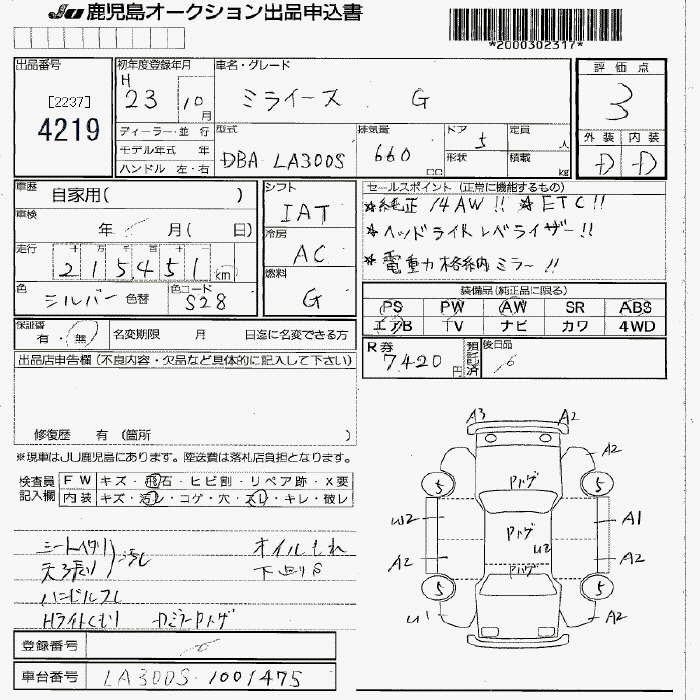 JU 鹿児島オークション出品申込書
*2000302317*
出品番号
[2237]
4219
初年度登録年月
H 23 10 月
車名・グレード
ミライース G
評価点
3
外装 内装
D D
ディーラー・並 行
モデル年式 年
ハンドル 左・右
型式
DBA LA300S
排気量
660 cc
ドア 5
形状
定員 人
積載 kg
車歴 自家用( )
車検 年 月( 日)
走行 十万千百十一
215451 km
色 シルバー 色替
色コード S28
シフト IAT
冷房 AC
燃料 G
セールスポイント (正常に機能するもの)
*純正14AW!! *ETC!!
*ヘッドライトレベライザー!!
*電動格納ミラー!!
装備品(純正品に限る)
PS PW AW SR ABS
エアB TV ナビ カワ 4WD
R券 7420円
預託済
後日品
保証書 有・無
名変期限 月 日迄に名変できる方
出品店申告欄(不良内容・欠品など具体的に記入して下さい)
修復歴 有 (箇所 )
※現車はJU鹿児島にあります。陸送費は落札店負担となります。
検査員記入欄
FW キズ・飛石・ヒビ割・リペア跡・X要
内装 キズ・汚レ・コゲ・穴・スレ・キレ・破レ
シートヘタリ
天張り
汚レ
オイルもれ
下廻りS
ハンドルスレ
Hライトくもり DミラーPハゲ
登録番号
車台番号 LA300S-1001475
A3 A2
A2
5 5
Pハゲ
W2 A1
Pハゲ
U2
A2 A2
Pハゲ
5 5
U1 A2